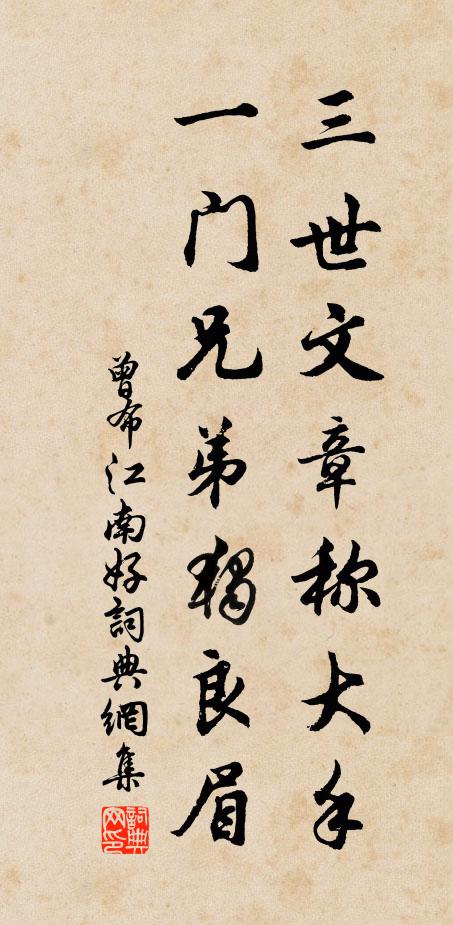 三世文章称大手
一门兄弟独良眉
曾布江南好詞典網集
詞典网印